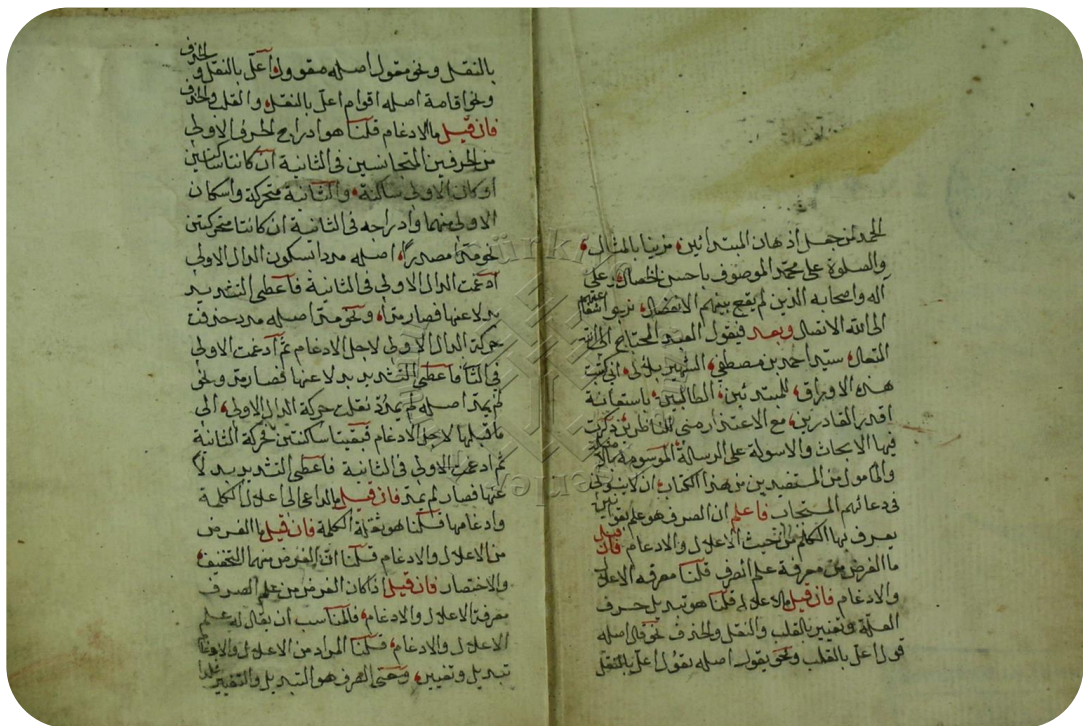 الحمد لمن جعل أذهان المبتدائين مزينا بالمثال
والصلوة على محمد الموصوف باحسن الخصال وعلى
اله واصحابه الذين لم يقع بينهم الانفصال
الى الله الاتصال وبعد فيقول العبد المحتاج الى الله
المتعال سيد احمد بن مصطفى الشهير اني كتبت
هذه الاوراق للمبتدئين الطالبين باستعانة
اقدر القادرين مع الاعتذار مني للناظرين ذكرت
فيها الابحاث والاسولة على الرسالة الموسومة
والمأمول من المستفيدين من هذا الكتاب ان لا ينسوني
في دعائهم المستجاب فاعلم ان الصرف هو علم بقوانين
يعرف بها الكلم من حيث الاعلال والادغام فان قيل
ما الغرض من معرفة علم الصرف قلنا معرفه الاعلال
والادغام فان قيل ما الاعلال قلنا هو تبديل حرف
العلة وتغيير بالقلب والنقل والحذف نحو قال اصله
قول اعل بالقلب ونحو يقول اصله يقول اعل بالنقل
بالنقل ونحو مقول اصله مقوول اعل بالنقل والحذف
ونحو اقامة اصله اقوام اعل بالنقل والقلب والحذف
فان قيل ما الادغام قلنا هو ادراج الحرف الاولى
من الحرفين المتجانسين في الثانية ان كانتا ساكنين
او كان الاولى ساكنة والثانية متحركة واسكان
الاولى منهما وادراجه في الثانية ان كانتا متحركتين
نحو مدا مصدرا اصله مددا بسكون الدال الاولى
ادغمت الدال الاولى في الثانية فاعطى التشديد
بدلا عنها فصار مدا ونحو مد اصله مدد حذفت
حركة الدال الاولى لاجل الادغام ثم ادغمت الاولى
في الثا فاعطى التشديد بدلا عنها فصار مد ونحو
لم يمد اصله لم يمدد نقلت حركة الدال الاولى الى
ما قبلها لاجل الادغام فبقيتا ساكنتين فحركة الثانية
ثم ادغمت الاولى في الثانية فاعطى التشديد بدلا
عنها فصار لم يمد فان قيل ما الداعى الى اعلال الكلمة
وادغامها قلنا هو ثقلة الكلمة فان قيل ما الغرض
من الاعلال والادغام قلنا ان الغرض منهما التخفيف
والاختصار فان قيل اذا كان الغرض من علم الصرف
معرفة الاعلال والادغام فالمناسب ان يقال له علم
الاعلال والادغام قلنا المراد من الاعلال والادغام
تبديل وتغيير ومعنى الصرف هو التبديل والتغيير